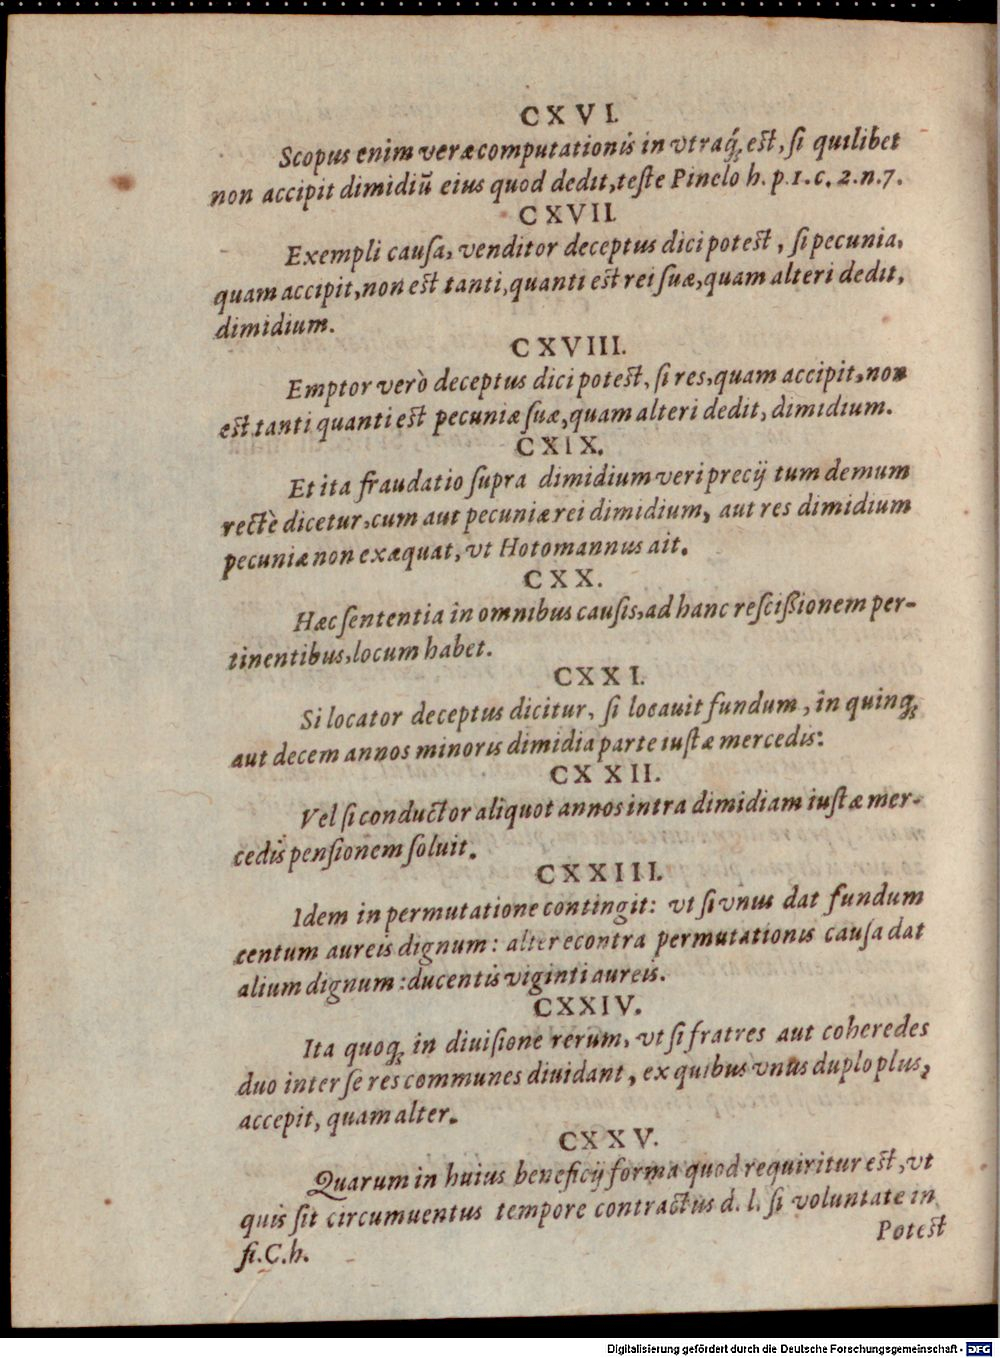 CXVI.
Scopus enim veræ computationis in vtraq́; est, ſi quilibet
non accipit dimidiũ eius quod dedit, teſte Pinelo h. p. 1. c. 2. n. 7.
CXVII.
Exempli cauſa, venditor deceptus dici potest, ſi pecunia,
quam accipit, non est tanti, quanti est rei ſuæ, quam alteri dedit,
dimidium.
CXVIII.
Emptor verò deceptus dici potest, ſi res, quam accipit, non
est tanti quanti est pecuniæ ſuæ, quam alteri dedit, dimidium.
CXIX.
Et ita fraudatio ſupra dimidium veri precij tum demum
rectè dicetur, cum aut pecuniæ rei dimidium, aut res dimidium
pecuniæ non exæquat, vt Hotomannus ait.
CXX.
Hæc ſententia in omnibus cauſis, ad hanc reſcißionem per-
tinentibus, locum habet.
CXXI.
Si locator deceptus dicitur, ſi locauit fundum, in quinq;
aut decem annos minoris dimidia parte iuſtæ mercedis:
CXXII.
Vel ſi conductor aliquot annos intra dimidiam iuſtæ mer-
cedis penſionem ſoluit.
CXXIII.
Idem in permutatione contingit: vt ſi vnus dat fundum
centum aureis dignum: alter econtra permutationis cauſa dat
alium dignum: ducentis viginti aureis.
CXXIV.
Ita quoq; in diuiſione rerum, vt ſi fratres aut coheredes
duo inter ſe res communes diuidant, ex quibus vnus duplo plus,
accepit, quam alter.
CXXV.
Quarum in huius beneficij forma quod requiritur est, vt
quis ſit circumuentus tempore contractus d. l. ſi voluntate in
fi. C. h.
Potest
Digitalisierung gefördert durch die Deutsche Forschungsgemeinschaft - DFG